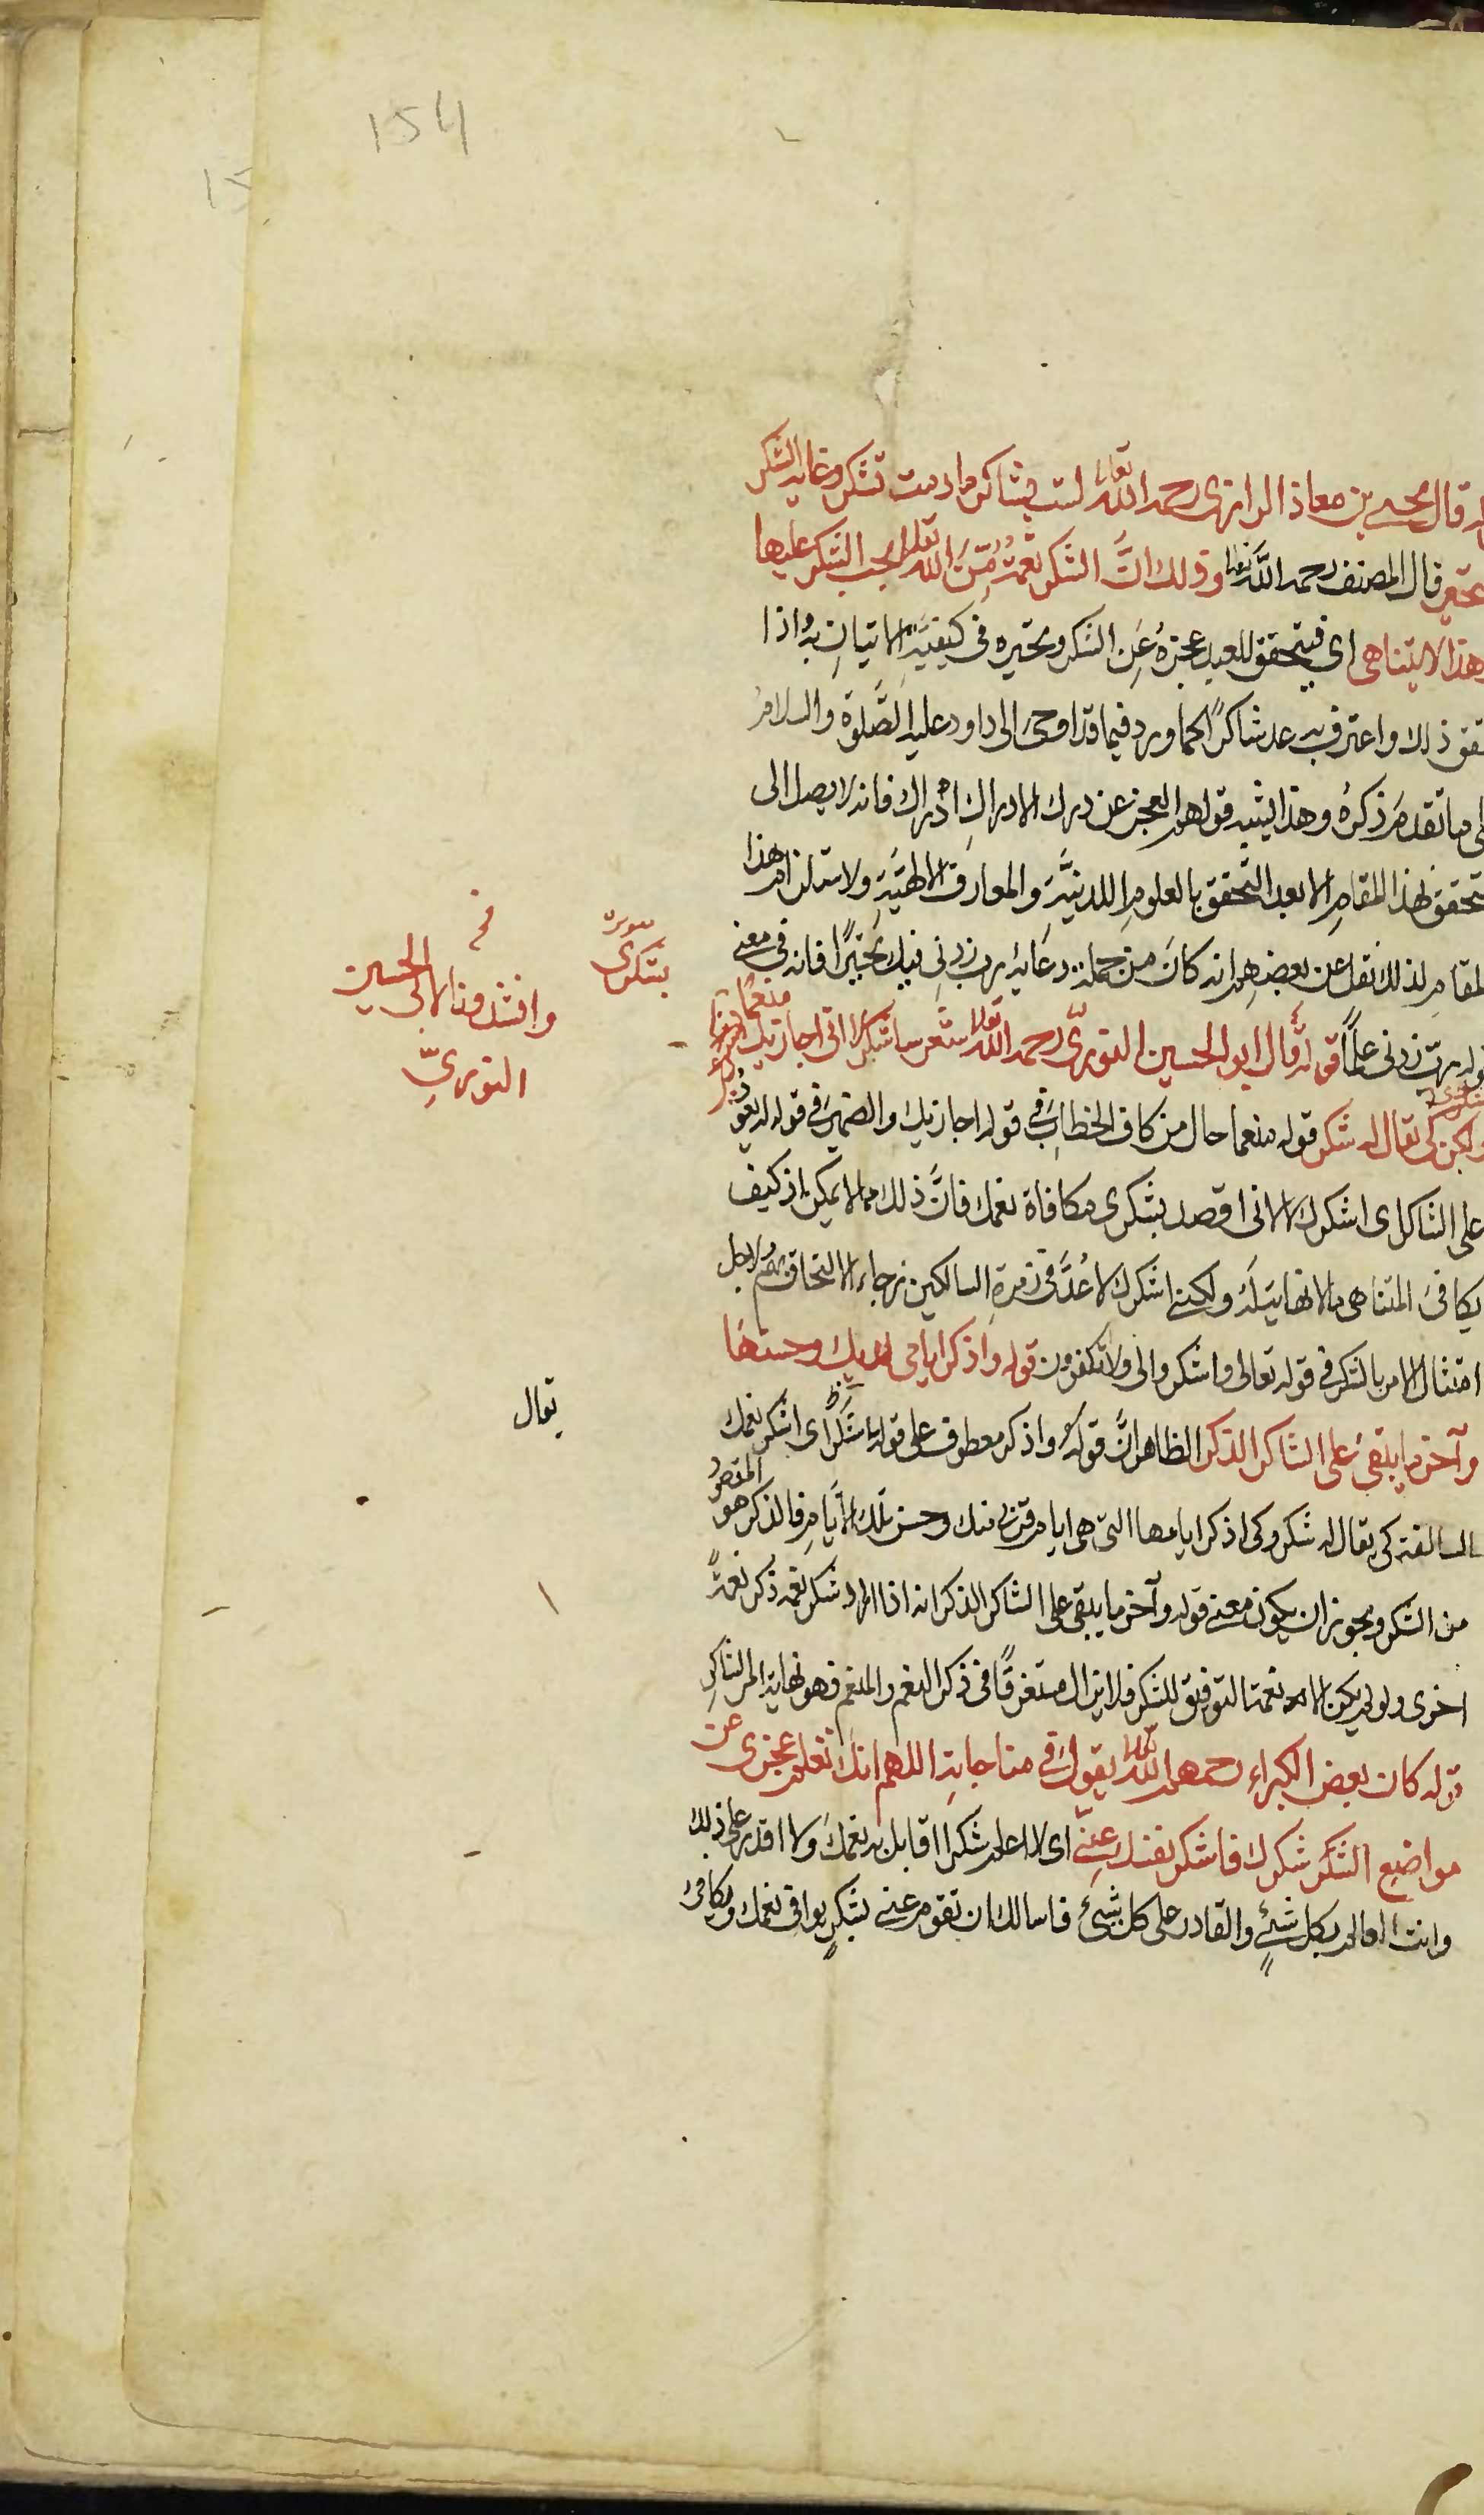 154
قال يحيى بن معاذ الرازى رحمه الله تعالى لست بشاكر ما دمت تشكر وغاية الشكر
تحير قال المصنف رحمه الله تعالى وذلك انَّ الشكر نعمةٌ مِّنَ الله تعالى يجب الشكر عليها
وهذا لا يتناهى اى فيتحقق للعبد عجزهُ عَنِ الشكر وتحيره فى كيفيَّة الاتيانِ به واذا
ذلك واعترف به عد شاكرًا كما ورد فيما قد اوحى الى داود عليه الصَّلوة والسلامُ
ما تقدمَ ذكرهُ وهذا يشبه قولهم العجز عن درك الادراكِ ادْراك فانه لا يصل الى
تحقق لهذا المقامِ الا بعد التحقق بالعلومِ اللدنيَّةِ والمعارف الالهيَّةِ ولاستلزام هذا
المقامِ لذلك نقل عن بعضِهم انه كانَ من جملة دعَائه رب زدنِى فيك تحيّرًا فانه فى معنى
ربّ زدنى علمًا قوله قال ابو الحسين النورىّ رحمه الله تعالى شعر ساشكر لا انى اجازيك منعمًا
ولكن كى يقال له شكر قوله منعما حال من كاف الخطابِ فى قوله اجازيك والضمير فى قوله له يعودُ
على الشاكر اى اشكرك لا لانى اقصد بشكرى مكافاة نعمك فانَّ ذلك مما لا يمكن اذ كيف
يكافئ المتناهى ما لا نهاية لَهُ ولكننى اشكرك لاعُدَّ فى زمرةِ السالكين رجاء الالتحاق بهم ولاجل
امتثال الامر بالشكر فى قوله تعالى واشكروا لى ولا تكفرون قوله واذكر ايامى لديك وحسنها
وآخر ما يبقى على الشاكر الذكر الظاهر انَّ قولهُ واذكر معطوف على قوله ساشكر اى اشكر نعمك
السالفة كى يقال له شكر وكى اذكر ايامها التى هى ايام قربى منك وحسن تلك الاَيَّامِ فالذكر هو المقصودُ
من الشكر ويجوز ان يكون معنى قوله وآخر ما يبقى على الشاكر الذكر انه اذا اراد شكر نعمه ذكر نعمةً
اخرى ولو لم يكن الا نعمة التوفيق للشكر فلا يزال مستغرقًا فى ذكر النعم والمنعم فهو نهاية امر الشاكرِ
قوله كان بعض الكبراء رحمهم الله تعالى يقول فى مناجاتِه اللهم انك تعلم عجزى عن
مواضع الشكر شكرك فاشكر نفسك عنِّى اى لا اعلم شكرا اقابل به نعمكَ ولا اقدر على ذلك
وانت العالم بكل شئٍ والقادر على كل شئ فاسالك ان تقوم عنى بشكرٍ يوافى نعمك ويكافئ
بشكرى
وانشدونا لابى الحسين
النورىّ
يقال